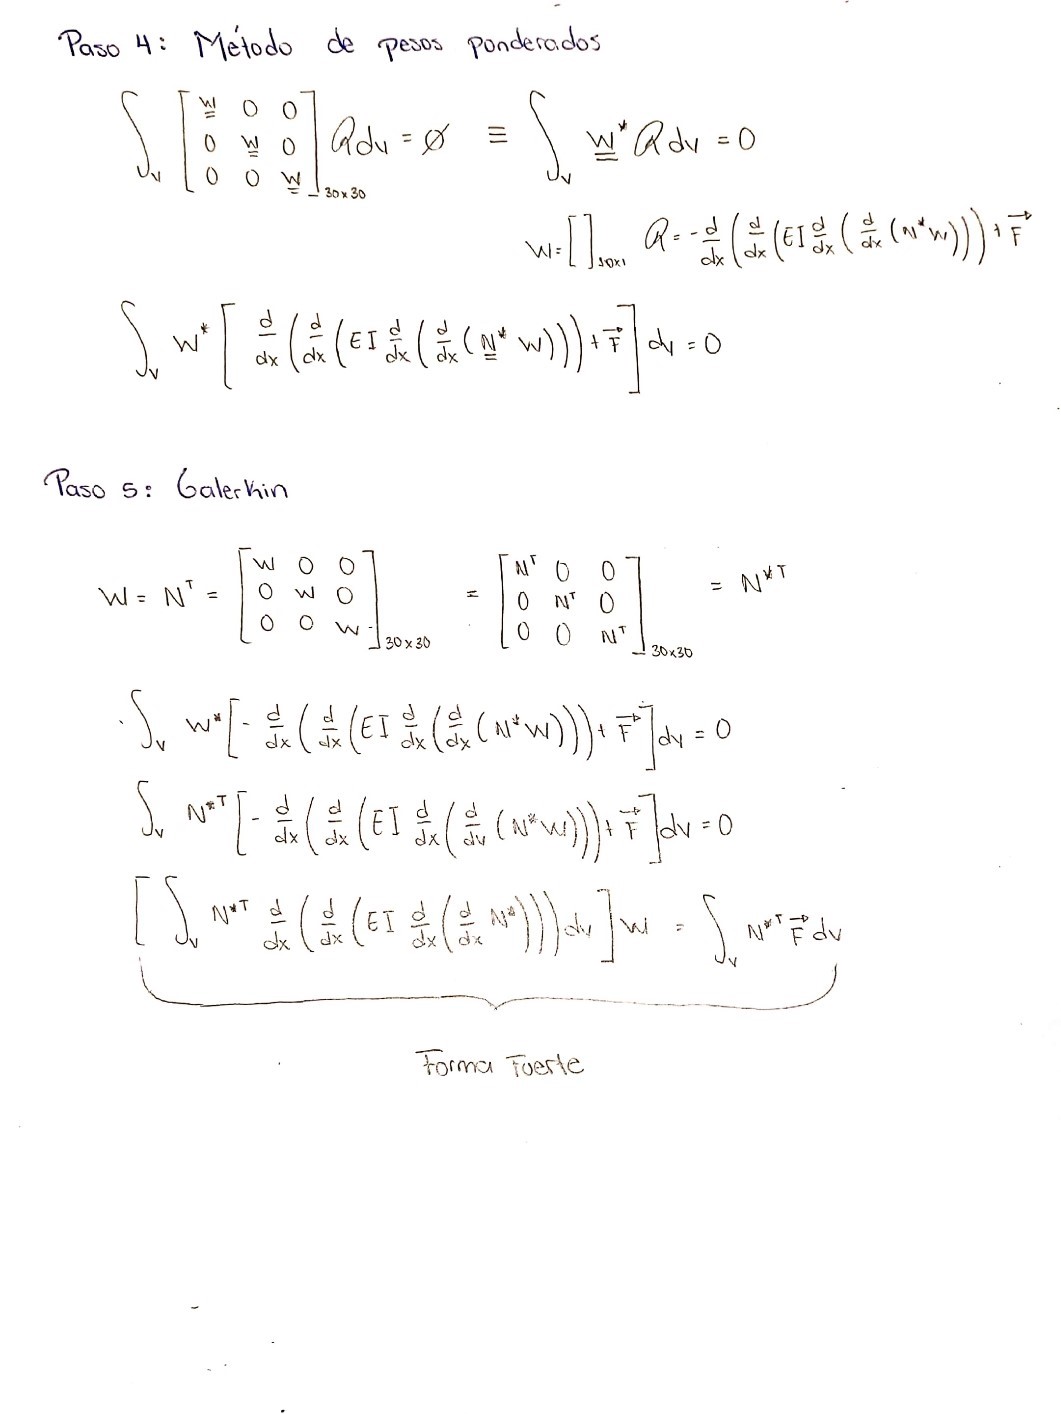 Paso 4: Método de pesos ponderados
∫_V [W 0 0; 0 W 0; 0 0 W]_30x30 R dv = ∅ ≡ ∫_V W* R dv = 0
W = [ ]_10x1 R = - d/dx (d/dx (EI d/dx (d/dx (N* W)))) + F→
∫_V W* [ d/dx (d/dx (EI d/dx (d/dx (N* W))) + F→ ] dv = 0
Paso 5: Galerkin
W = N^T = [W 0 0; 0 W 0; 0 0 W]_30x30 = [N^T 0 0; 0 N^T 0; 0 0 N^T]_30x30 = N*^T
∫_V W* [ - d/dx (d/dx (EI d/dx (d/dx (N* W))) + F→ ] dv = 0
∫_V N*^T [ - d/dx (d/dx (EI d/dx (d/dv (N* W))) + F→ ] dv = 0
[ ∫_V N*^T d/dx (d/dx (EI d/dx (d/dx N*))) dv ] W = ∫_V N*^T F→ dv
Forma Fuerte